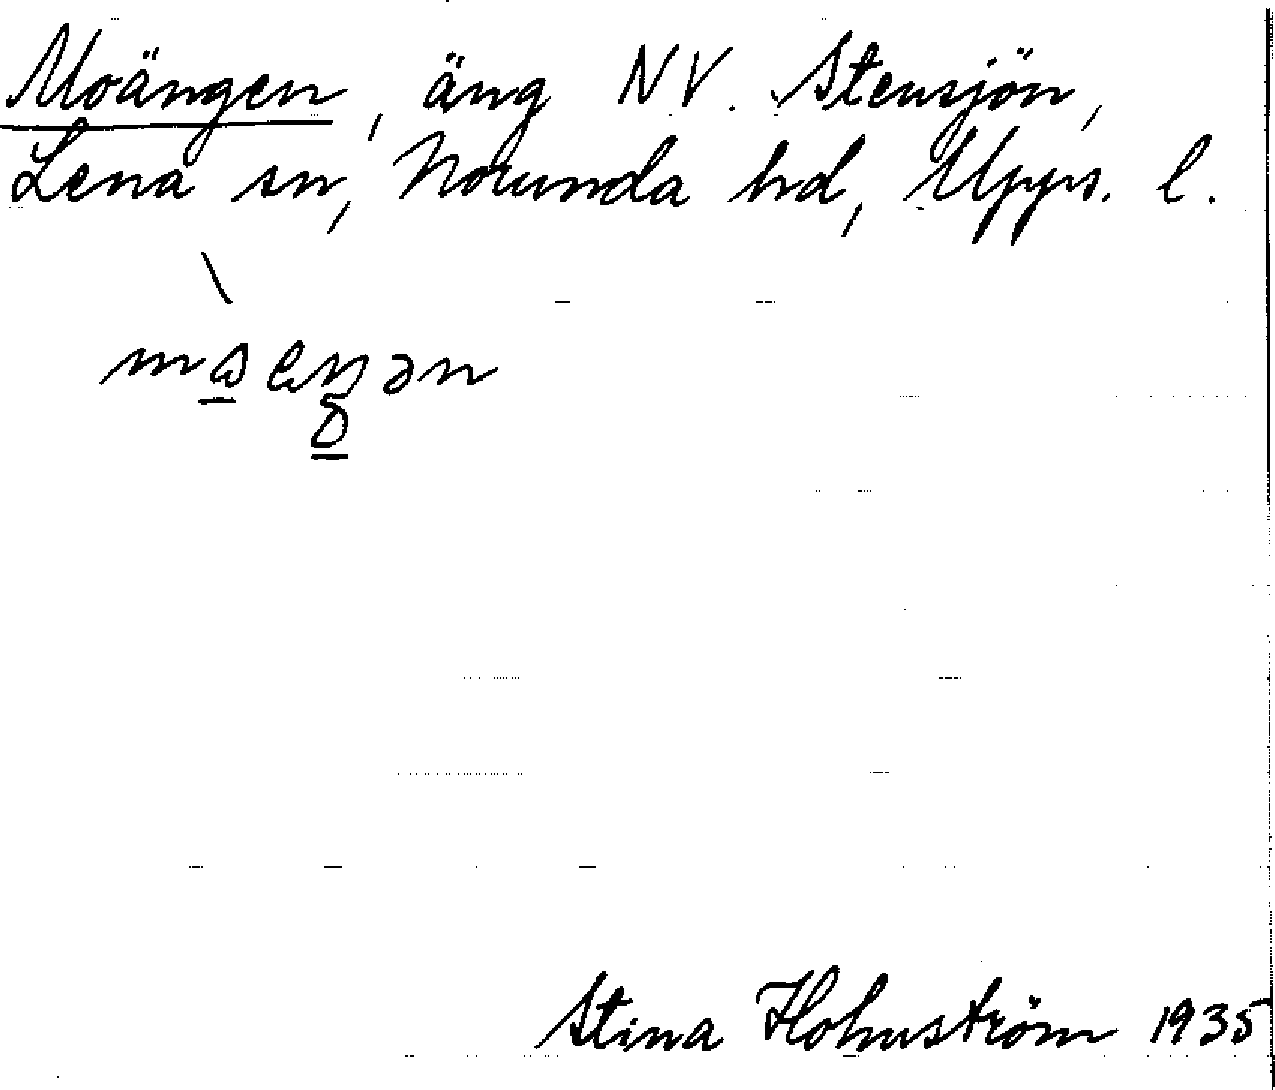 Moängen, äng NV. Stensjön,
Lena sn, Norunda hd, Upps. l.
Stina Holmström 1935